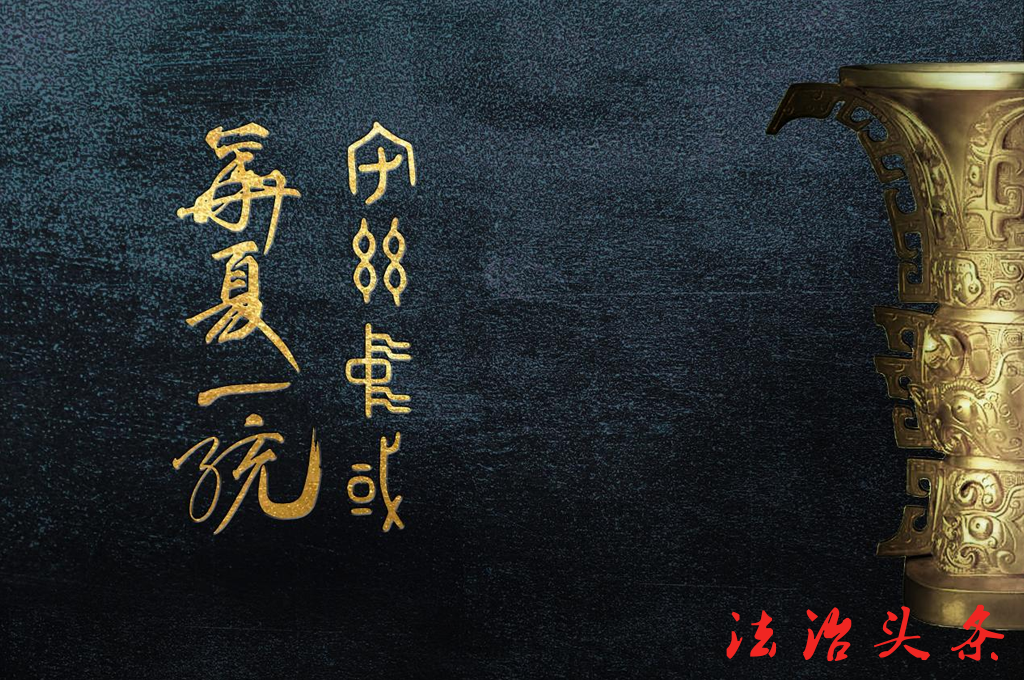 宅兹中或
華夏一统
法治头条